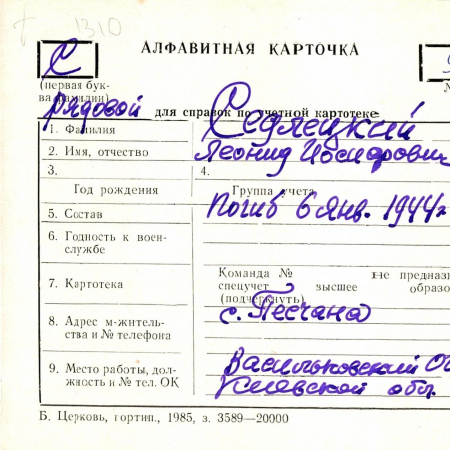 1310
АЛФАВИТНАЯ КАРТОЧКА
С
(первая бук-
ва фамилии)
Рядовой для справок по учетной картотеке
1. Фамилия Седлецкий
2. Имя, отчество Леонид Иосифович
3. 4.
Год рождения Группа учета
5. Состав Погиб 6 янв. 1944г
6. Годность к воен-
службе
Команда № не предназ
7. Картотека спецучет высшее образо
(подчеркнуть)
8. Адрес м-житель-
ства и № телефона с. Песчана
9. Место работы, дол-
жность и № тел. ОК Васильковский
Киевской обл.
Б. Церковь, гортип., 1985, з. 3589—20000